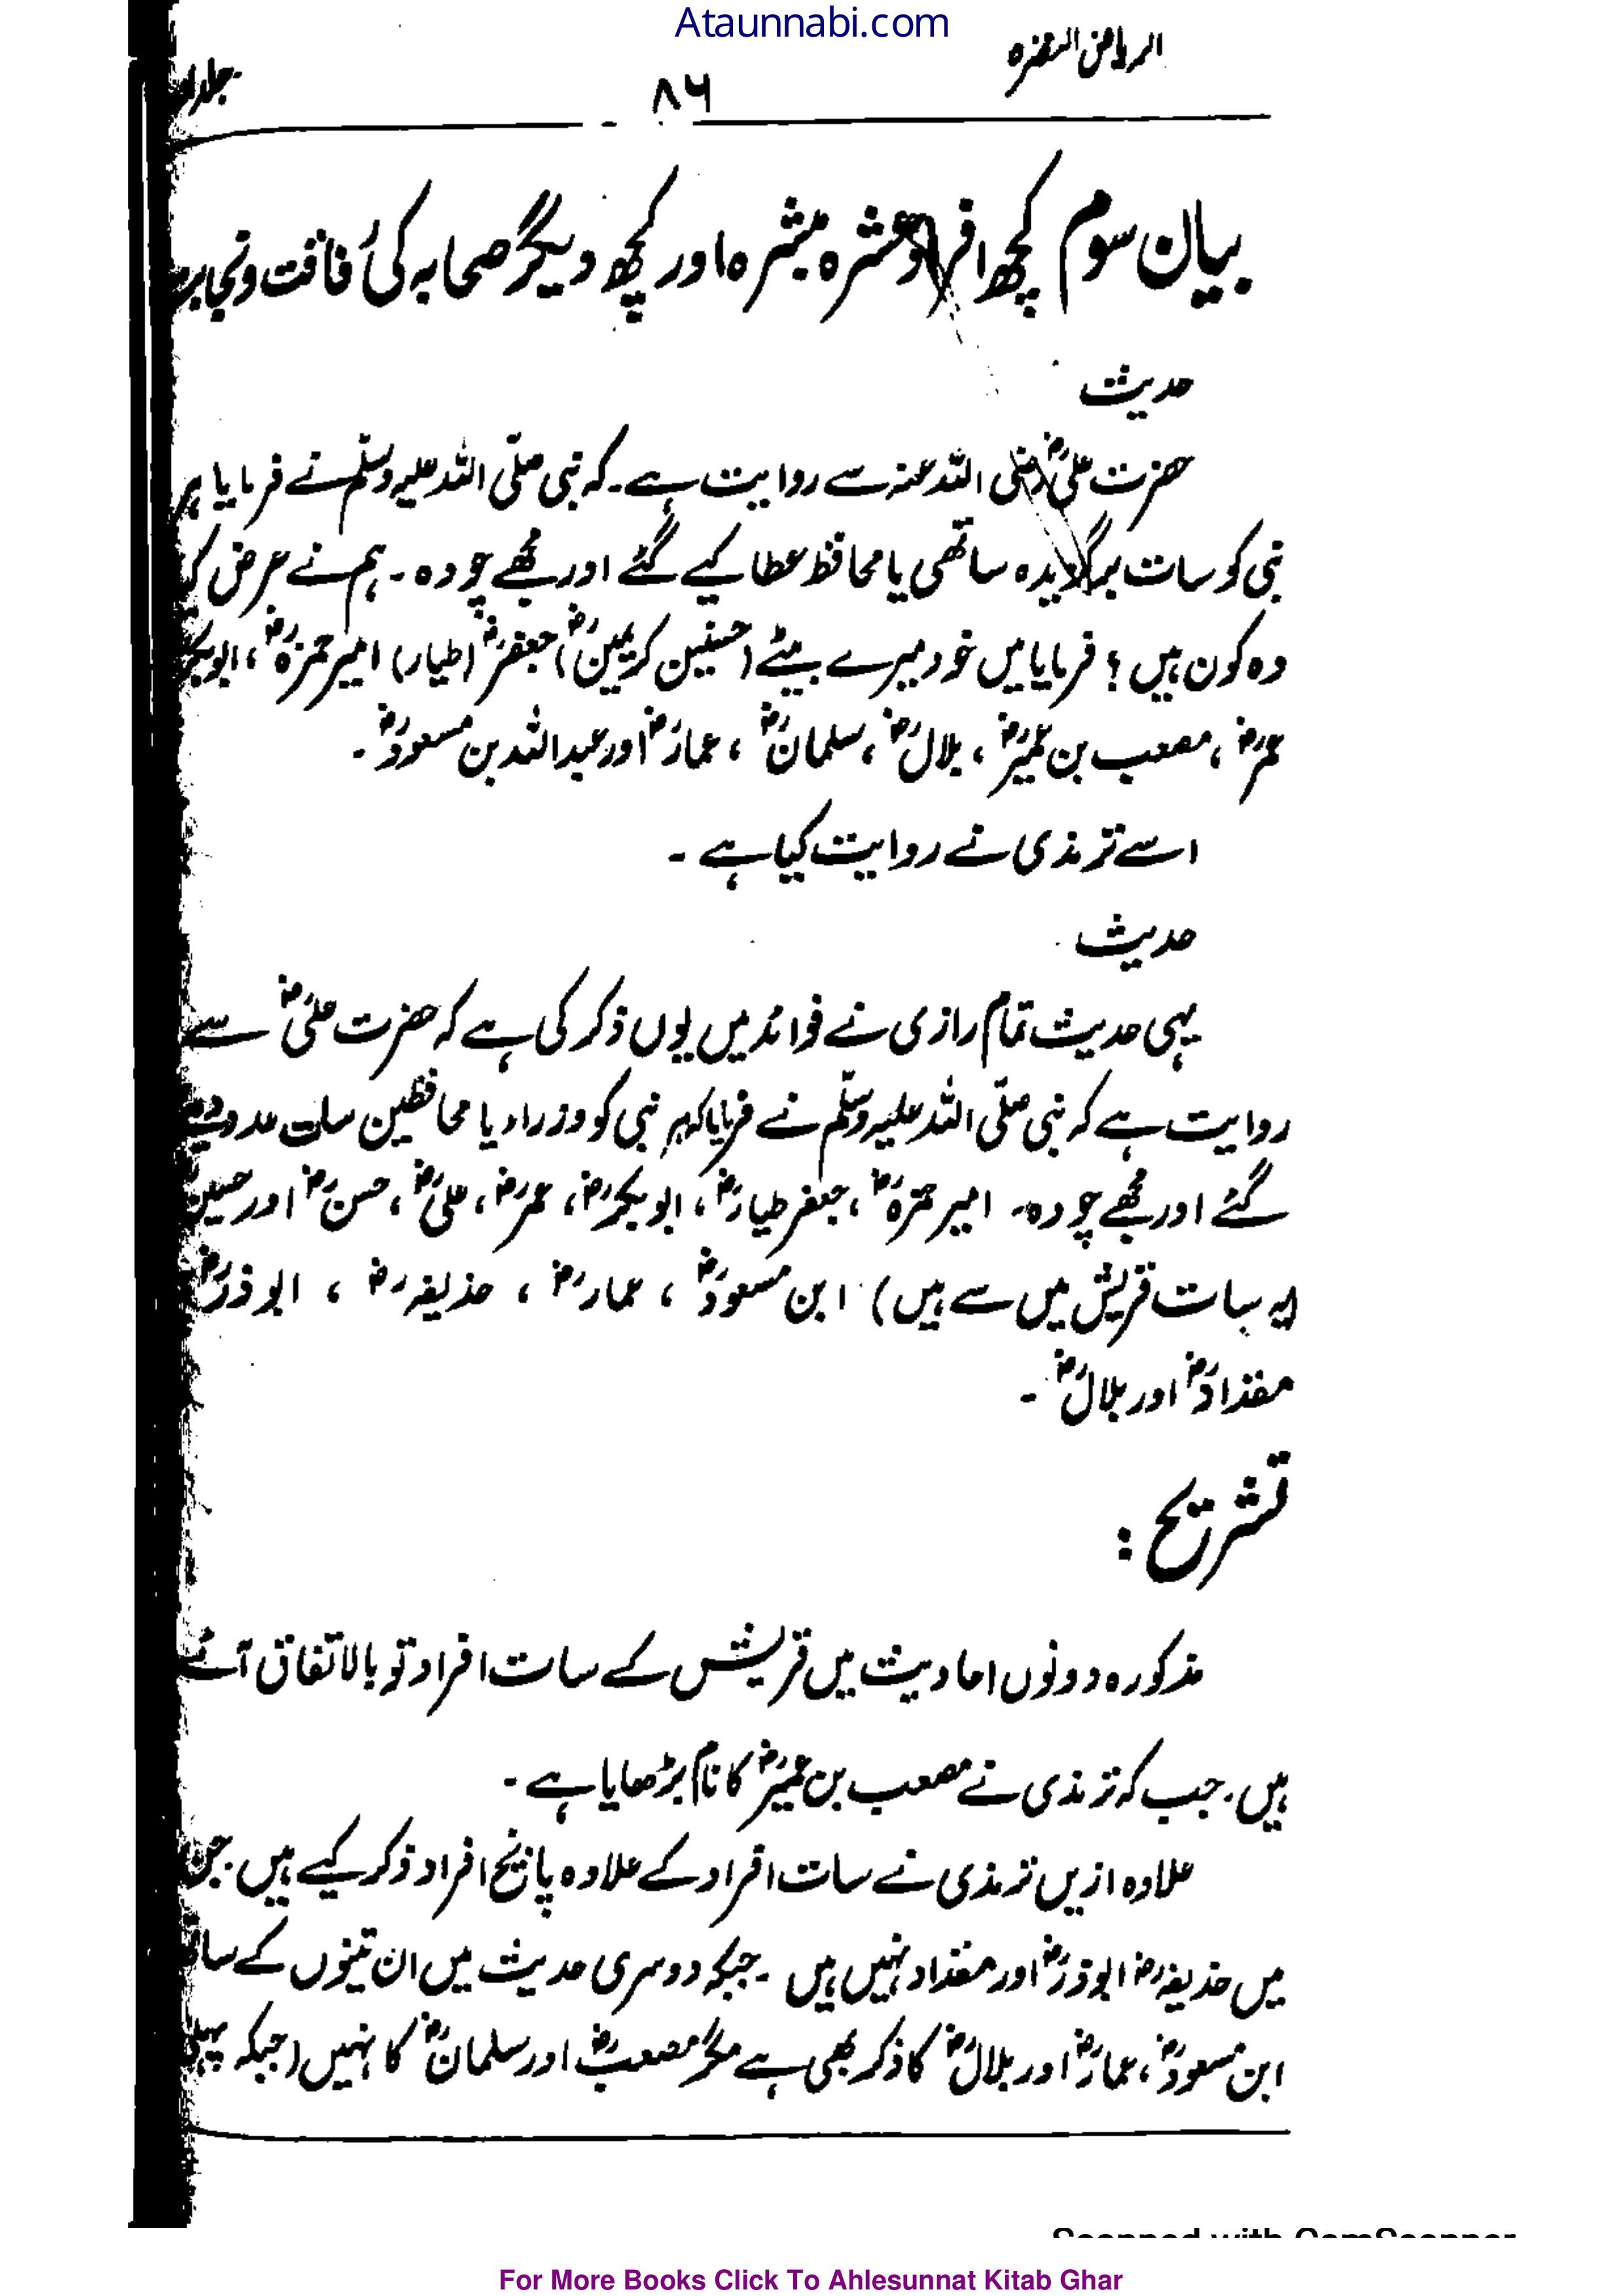 Ataunnabi.com
الریاض النضرہ
۸۶
جلد اول
بیان سوم کچھ افراد عشرہ مبشرہ اور کچھ دیگر صحابہ کی رفاقت و نجابت
حدیث
حضرت علیؓ رضی اللہ عنہ سے روایت ہے۔ کہ نبی صلّی اللہ علیہ وسلّم نے فرمایا ہر
نبی کو سات برگزیدہ ساتھی یا محافظ عطا کیے گئے اور مجھے چودہ۔ ہم نے عرض کی
وہ کون ہیں؟ فرمایا میں خود میرے بیٹے (حسنین کریمینؓ) جعفرؓ (طیار) امیر حمزہؓ، ابوبکرؓ
عمرؓ، مصعب بن عمیرؓ، بلالؓ، سلمانؓ، عمارؓ اور عبداللہ بن مسعودؓ۔
اسے ترمذی نے روایت کیا ہے۔
حدیث
یہی حدیث تمام رازی نے فوائد میں یوں ذکر کی ہے کہ حضرت علیؓ سے
روایت ہے کہ نبی صلّی اللہ علیہ وسلّم نے فرمایا کہ ہر نبی کو وزراء یا محافظین سات عدد دیے
گئے اور مجھے چودہ۔ امیر حمزہؓ، جعفر طیارؓ، ابوبکرؓ، عمرؓ، علیؓ، حسنؓ اور حسینؓ
(یہ سات قریش میں سے ہیں) ابن مسعودؓ، عمارؓ، حذیفہؓ، ابوذرؓ
مقدادؓ اور بلالؓ۔
تشریح:
مذکورہ دونوں احادیث میں قریش کے سات افراد تو بالاتفاق آئے
ہیں۔ جب کہ ترمذی نے مصعب بن عمیرؓ کا نام بڑھایا ہے۔
علاوہ ازیں ترمذی نے سات افراد کے علاوہ پانچ افراد ذکر کیے ہیں۔ جن
میں حذیفہؓ ابوذرؓ اور مقداد نہیں ہیں۔ جبکہ دوسری حدیث میں ان تینوں کے ساتھ
ابن مسعودؓ، عمارؓ اور بلالؓ کا ذکر بھی ہے مگر مصعبؓ اور سلمانؓ کا نہیں (جبکہ پہلی
Scanned with CamScanner
For More Books Click To Ahlesunnat Kitab Ghar